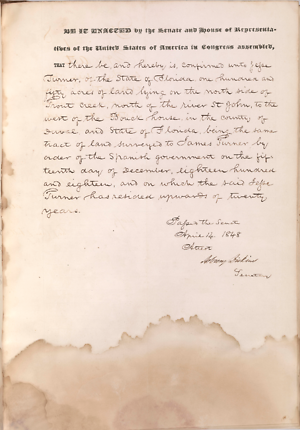 BE IT ENACTED by the Senate and House of Representa-
tives of the United States of America in Congress assembled,
THAT there be and hereby is, confirmed unto Jesse
Turner, of the State of Florida one hundred and
fifty acres of land lying on the north side of
Trout creek, north of the river St John, to the
west of the house, in the county of
Duval and State of Florida, being the same
tract of land surveyed to James Turner by
order of the Spanish government on the fif-
teenth day of December, eighteen hundred
and eighteen, and on which the said Jesse
Turner has resided upwards of twenty
years.
Passed the Senate
April 14. 1848
Attest
Secretary